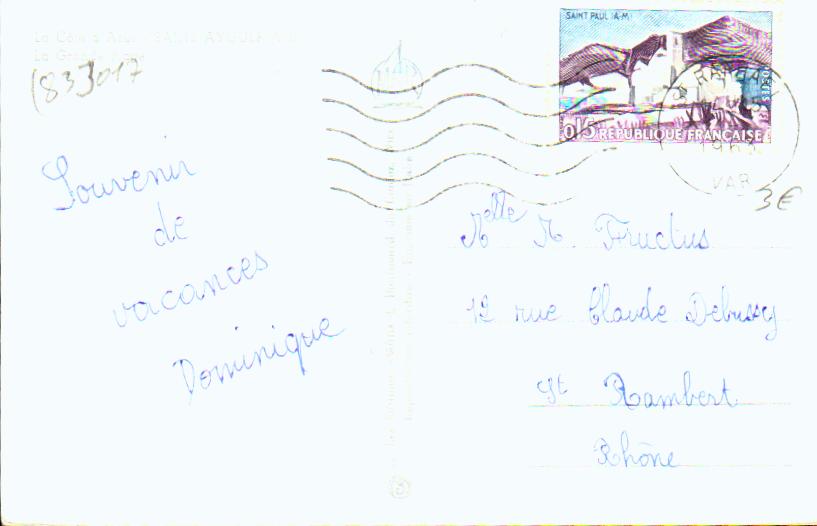 La Côte d'Azur - SAINT AYGULF
La Grande Plage
(83)017
Souvenir
de
vacances
Dominique
SAINT PAUL (A-M)
POSTES
0,15 RÉPUBLIQUE FRANÇAISE
VAR
3€
Melle M. Fructus
12 rue Claude Debussy
St Rambert
Rhône